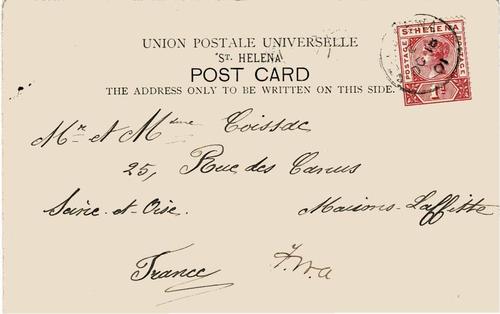 UNION POSTALE UNIVERSELLE
ST. HELENA
POST CARD
THE ADDRESS ONLY TO BE WRITTEN ON THIS SIDE.
ST HELENA
POSTAGE
POSTAGE
OC 16
01
Mr et Mdme Coissac
25, Rue des Canus
Seine-et-Oise. Maisons-Laffitte
France